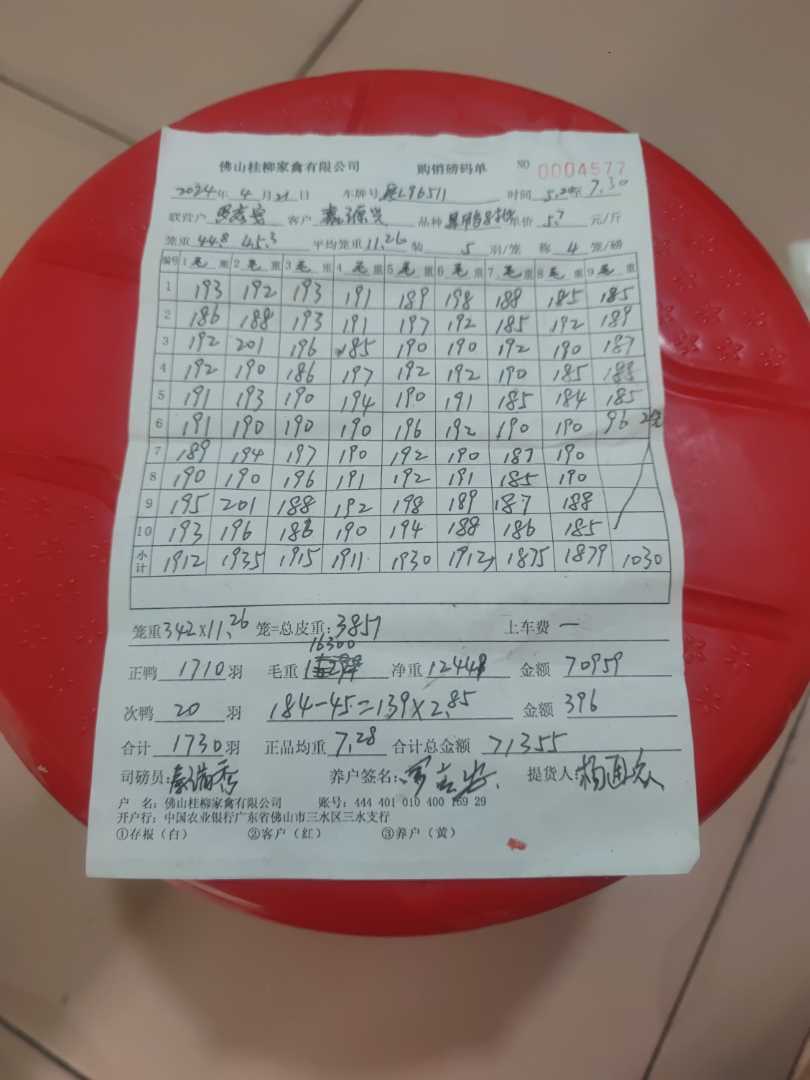 佛山桂柳家禽有限公司 购销磅码单 NO 0004577
2024年 4 月 21 日 车牌号 L96511 时间 5.20至7.30
联营户 客户 品种 单价 5.7 元/斤
笼重 44.8 45.3 平均笼重 11.26 装 5 羽/笼 称 4 笼/磅
编号 1 毛 重 2 毛 重 3 毛 重 4 毛 重 5 毛 重 6 毛 重 7 毛 重 8 毛 重 9 毛 重
1 193 192 193 191 189 198 188 185 185
2 186 188 193 191 197 192 185 192 189
3 192 201 196 185 190 190 192 190 187
4 192 190 186 197 192 192 190 185 188
5 191 193 190 194 190 191 185 184 185
6 191 190 190 190 196 192 190 190 96 2笼
7 189 194 197 190 192 190 187 190
8 190 190 196 191 192 191 185 190
9 195 201 188 192 198 189 187 188
10 193 196 186 190 194 188 186 185
小计 1912 1935 1915 1911 1930 1912 1875 1879 1030
笼重 342×11.26 笼=总皮重: 3851 上车费 一
正鸭 1710 羽 毛重 16300 净重 12448 金额 70959
次鸭 20 羽 184-45=139×2.85 金额 396
合计 1730 羽 正品均重 7.28 合计总金额 71355
司磅员: 养户签名: 提货人:
户 名: 佛山桂柳家禽有限公司 账号: 444 401 010 400 169 29
开户行: 中国农业银行广东省佛山市三水区三水支行
①存根(白) ②客户(红) ③养户(黄)